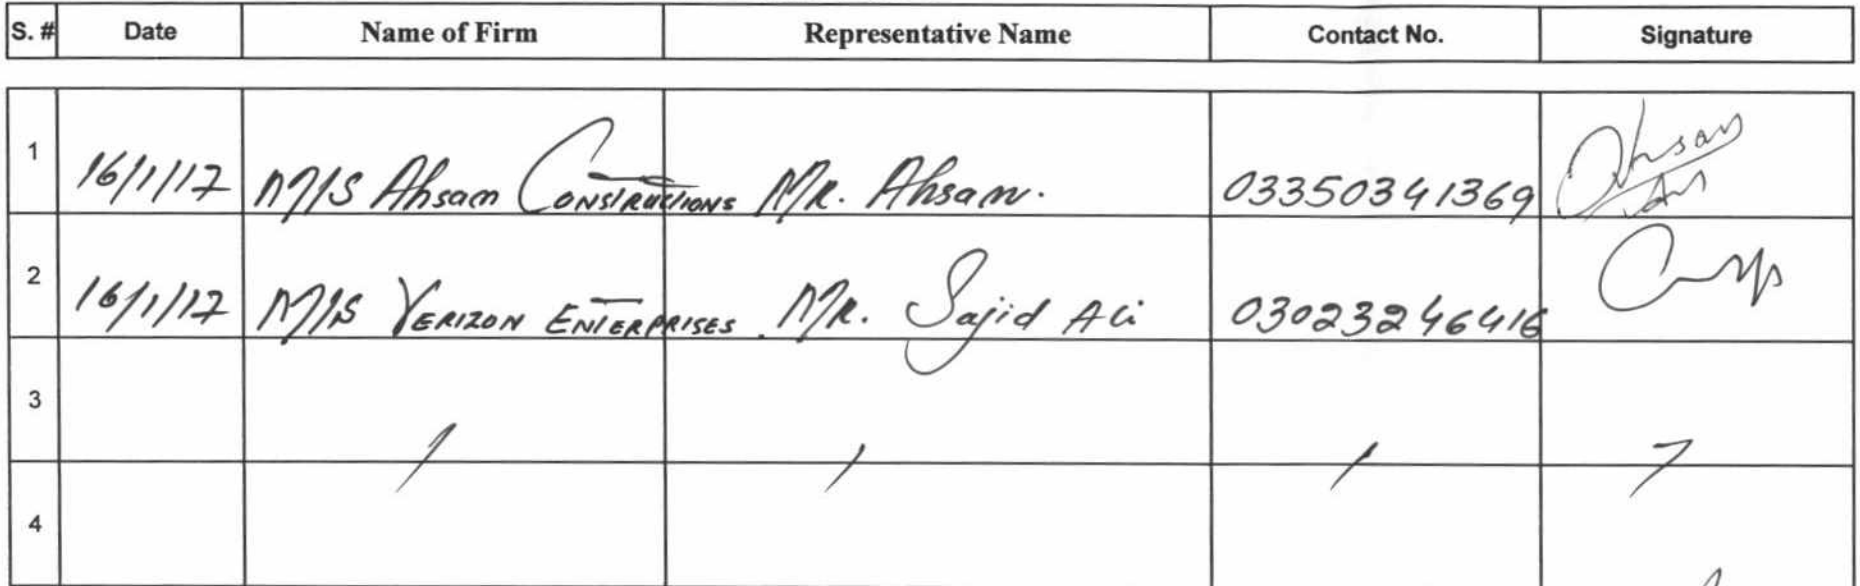 S. # Date Name of Firm Representative Name Contact No. Signature
1 16/1/17 M/S Ahsam Constructions Mr. Ahsam. 03350341369 Ahsan
2 16/1/17 M/S Verizon Enterprises. Mr. Sajid Ali 03023246416
3
4